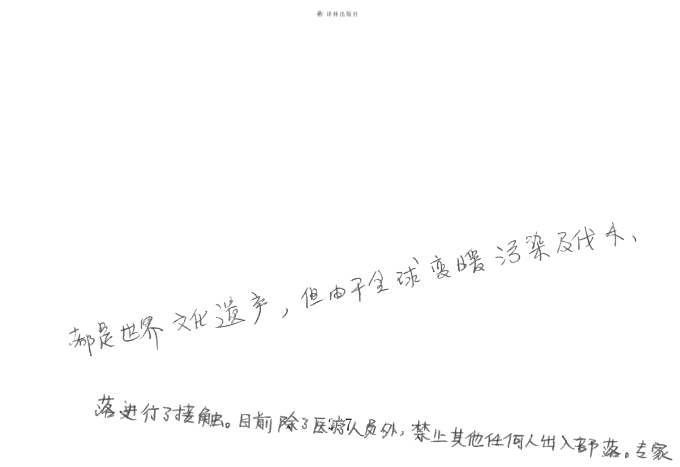 译林出版社
都是世界文化遗产，但由于全球变暖污染及伐木、
落进行了接触。目前除了医疗人员外，禁止其他任何人出入部落。专家